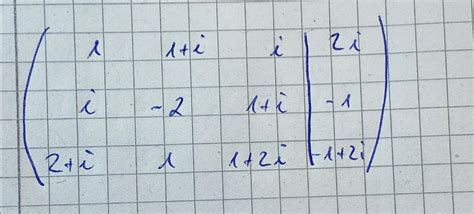 1 1+i i | 2i
i -2 1+i | -1
2+i 1 1+2i | -1+2i